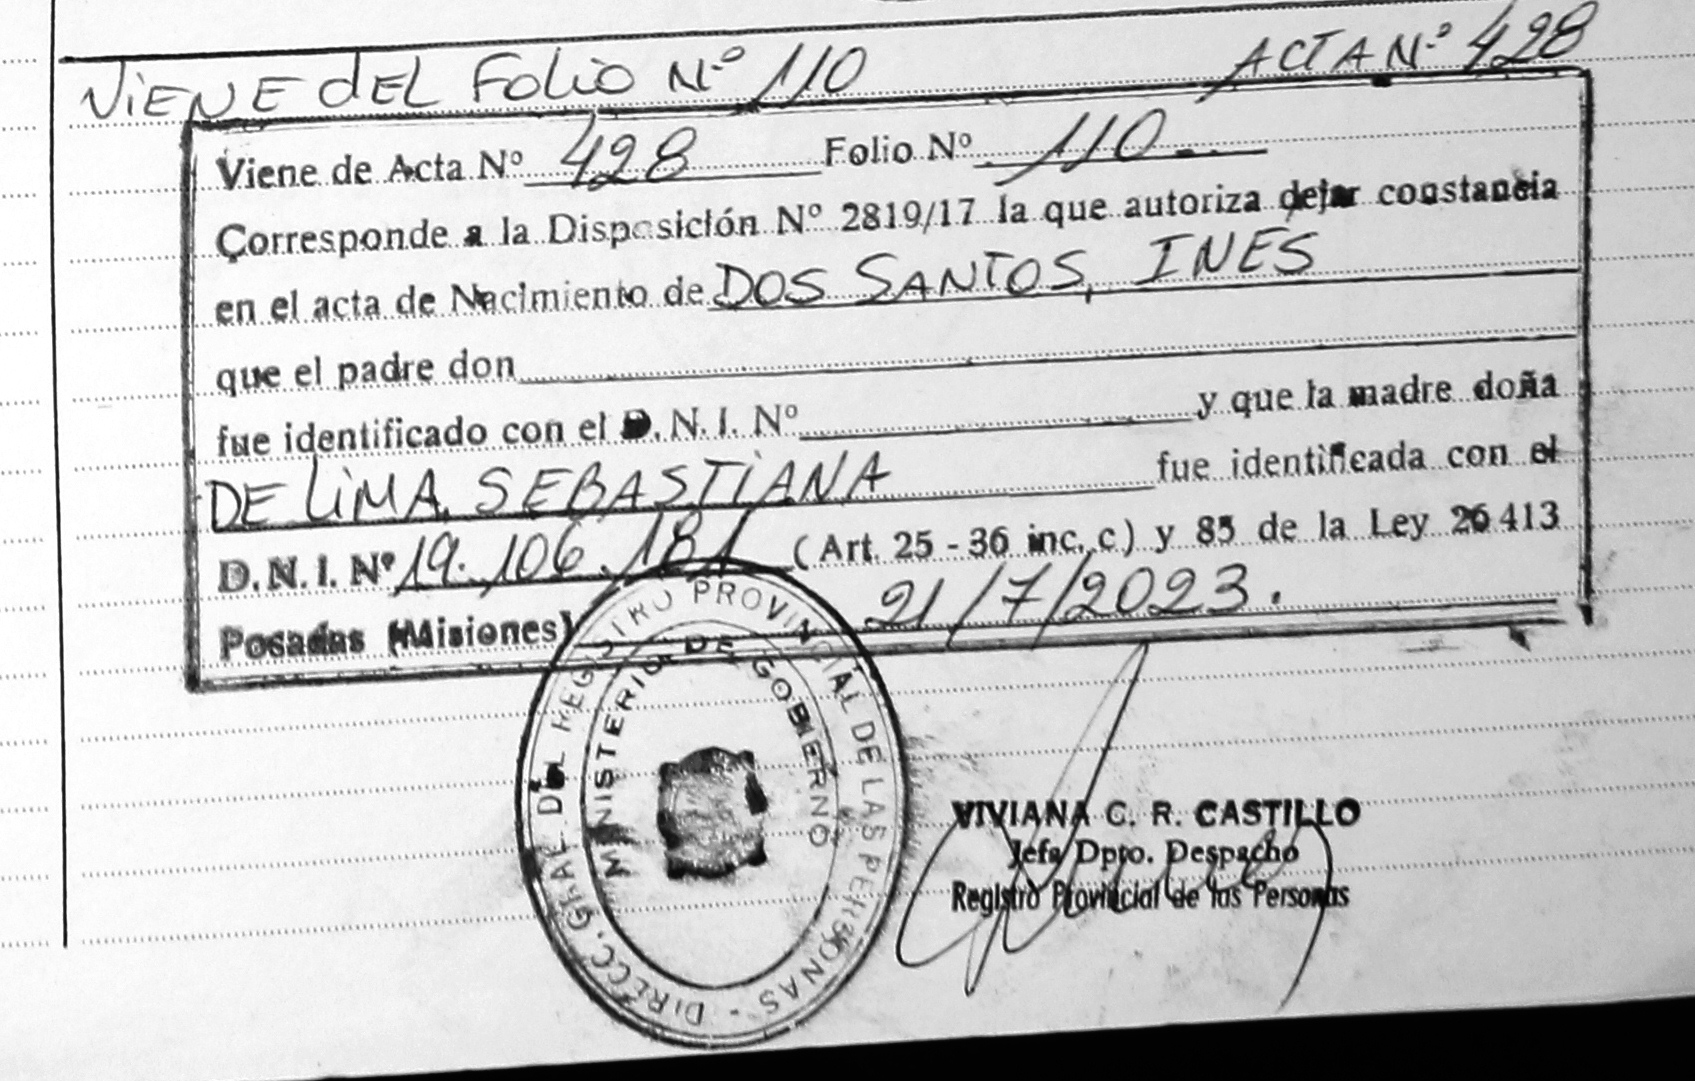 VIENE DEL FOLIO Nº 110 ACTA Nº 428
Viene de Acta Nº 428 Folio Nº 110
Corresponde a la Disposición Nº 2819/17 la que autoriza dejar constancia
en el acta de Nacimiento de DOS SANTOS, INES
que el padre don
fue identificado con el D.N.I. Nº y que la madre doña
DE LIMA, SEBASTIANA fue identificada con el
D.N.I. Nº 19.106.181 (Art. 25 - 36 inc. c) y 85 de la Ley 26413
Posadas (Misiones) 21/7/2023.
DIRECC. GRAL DEL REGISTRO PROVINCIAL DE LAS PERSONAS -
MINISTERIO DE GOBIERNO
VIVIANA C. R. CASTILLO
Jefa Dpto. Despacho
Registro Provincial de las Personas